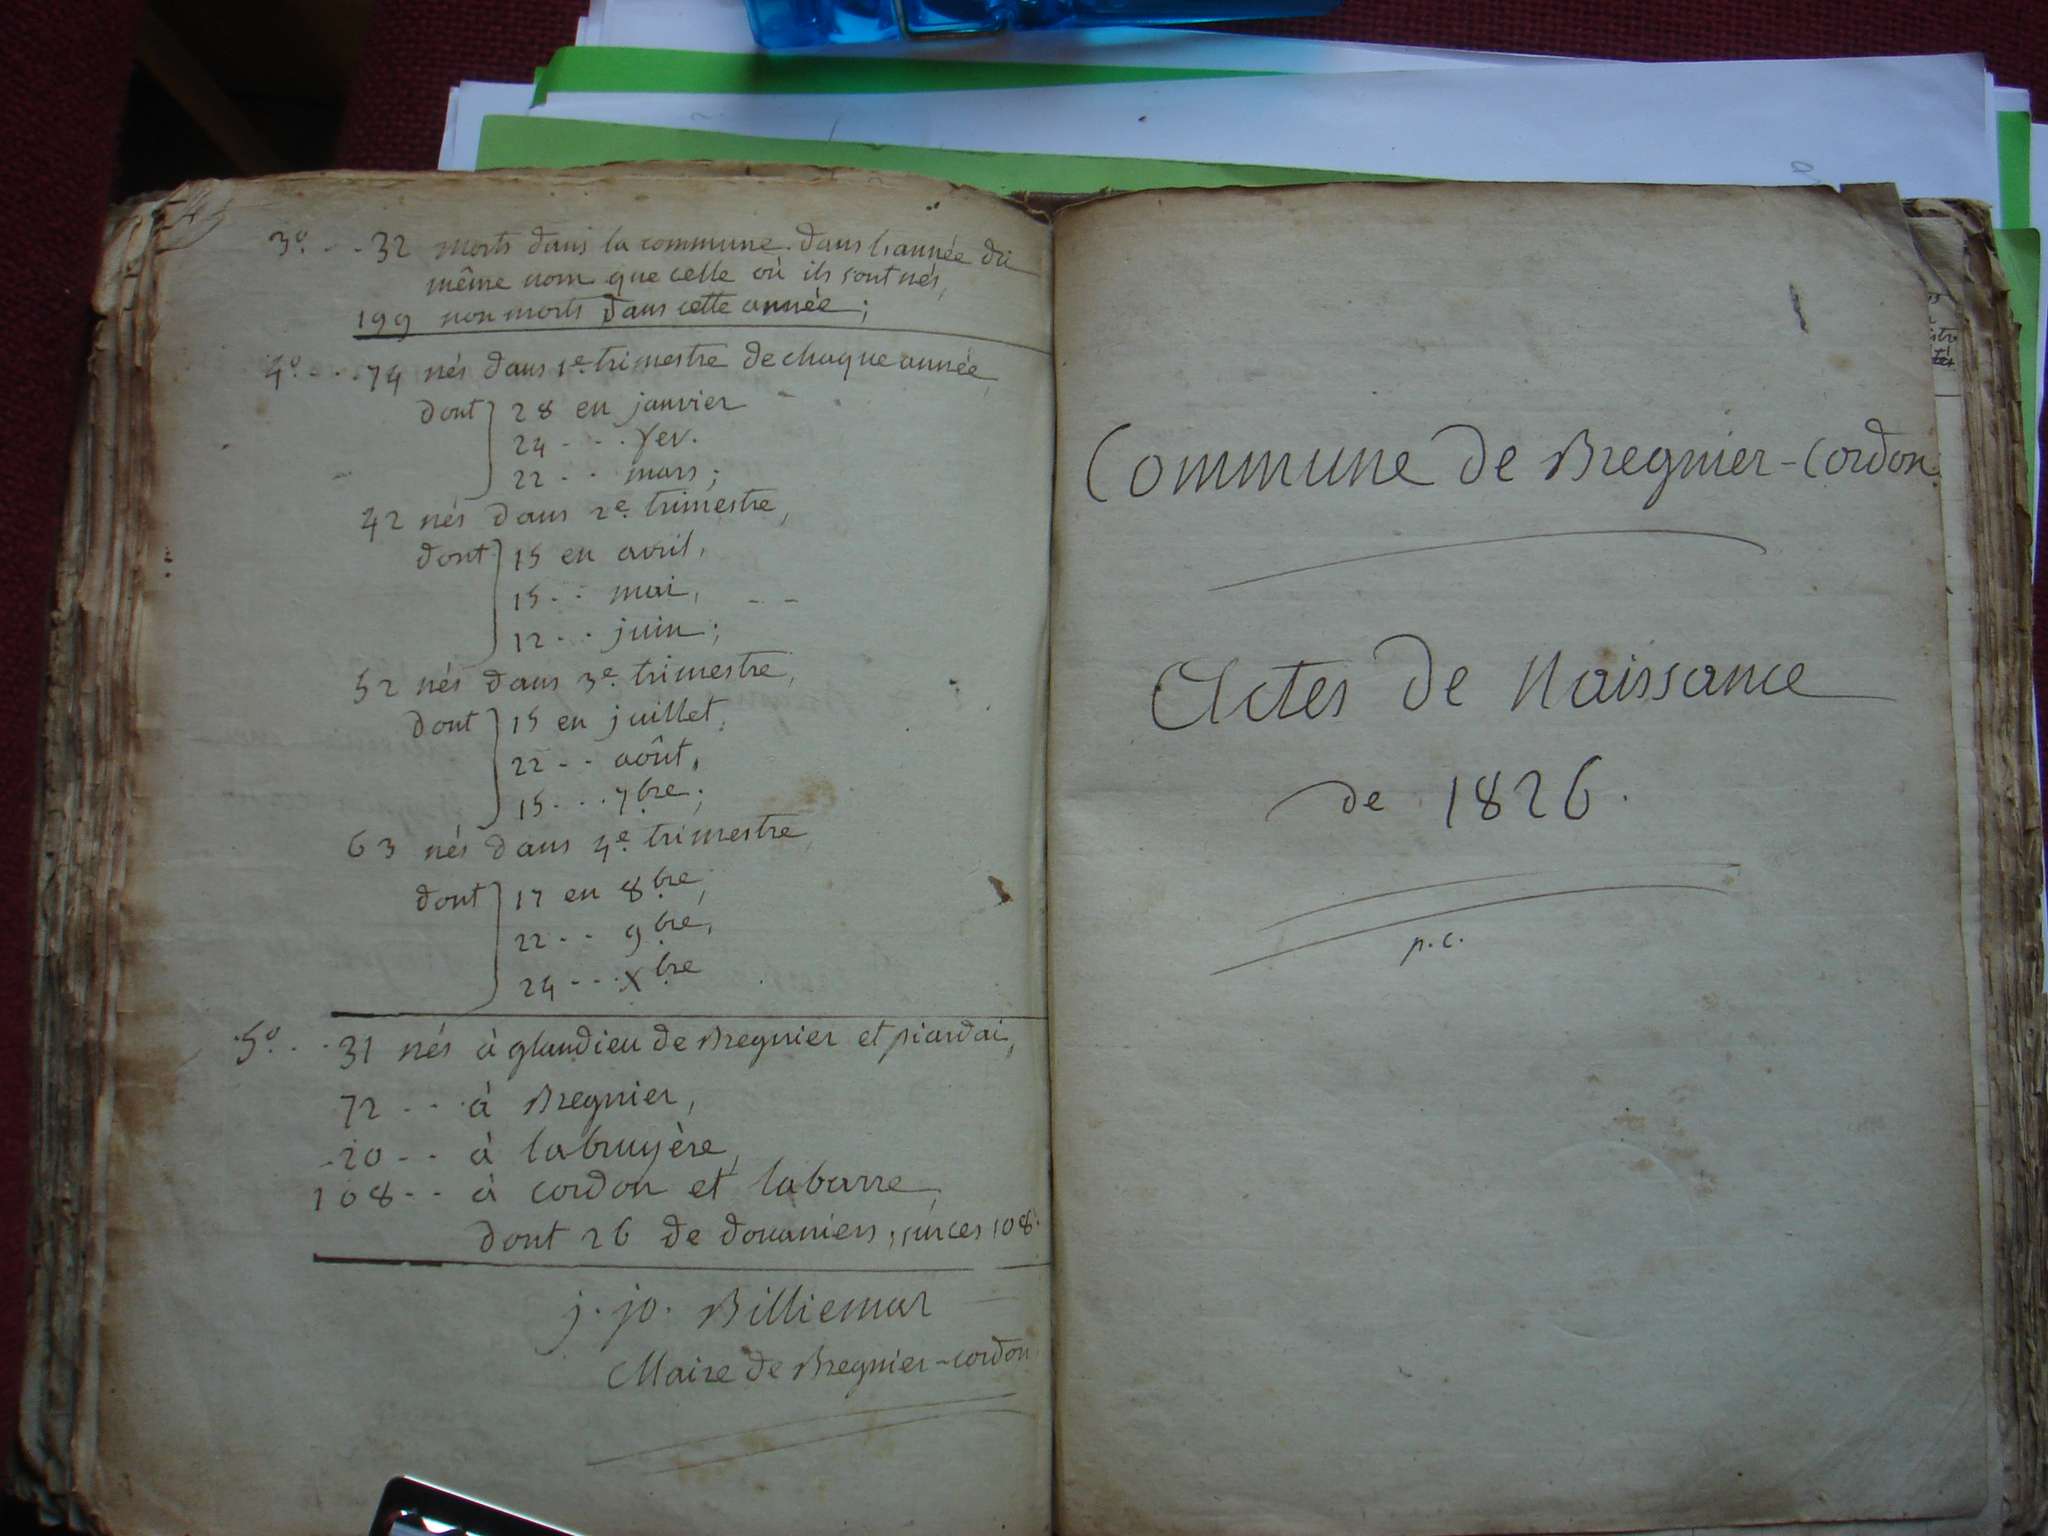 3º. - - 32 morts dans la commune dans l'année du
même nom que celle où ils sont nés,
199 non morts dans cette année;
4º. - - 74 nés dans 1e. trimestre de chaque année,
dont 28 en janvier
24 - - - fev.
22 - - mars;
42 nés dans 2e. trimestre,
dont 15 en avril,
15 - - mai,
12 - - juin;
52 nés dans 3e. trimestre,
dont 15 en juillet,
22 - - août,
15 - - - 7bre;
63 nés dans 4e. trimestre,
dont 17 en 8bre,
22 - - 9bre,
24 - - - Xbre
5º. - - 31 nés à glandieu de Bregnier et piardai,
72 - - - à Bregnier,
20 - - à labruyère,
108 - - à cordon et labarre,
dont 26 de douaniers, sur ces 108.
j. jo. Billiemar
Maire de Bregnier-cordon
Commune de Bregnier-Cordon.
Actes de Naissance
de 1826.
p.c.